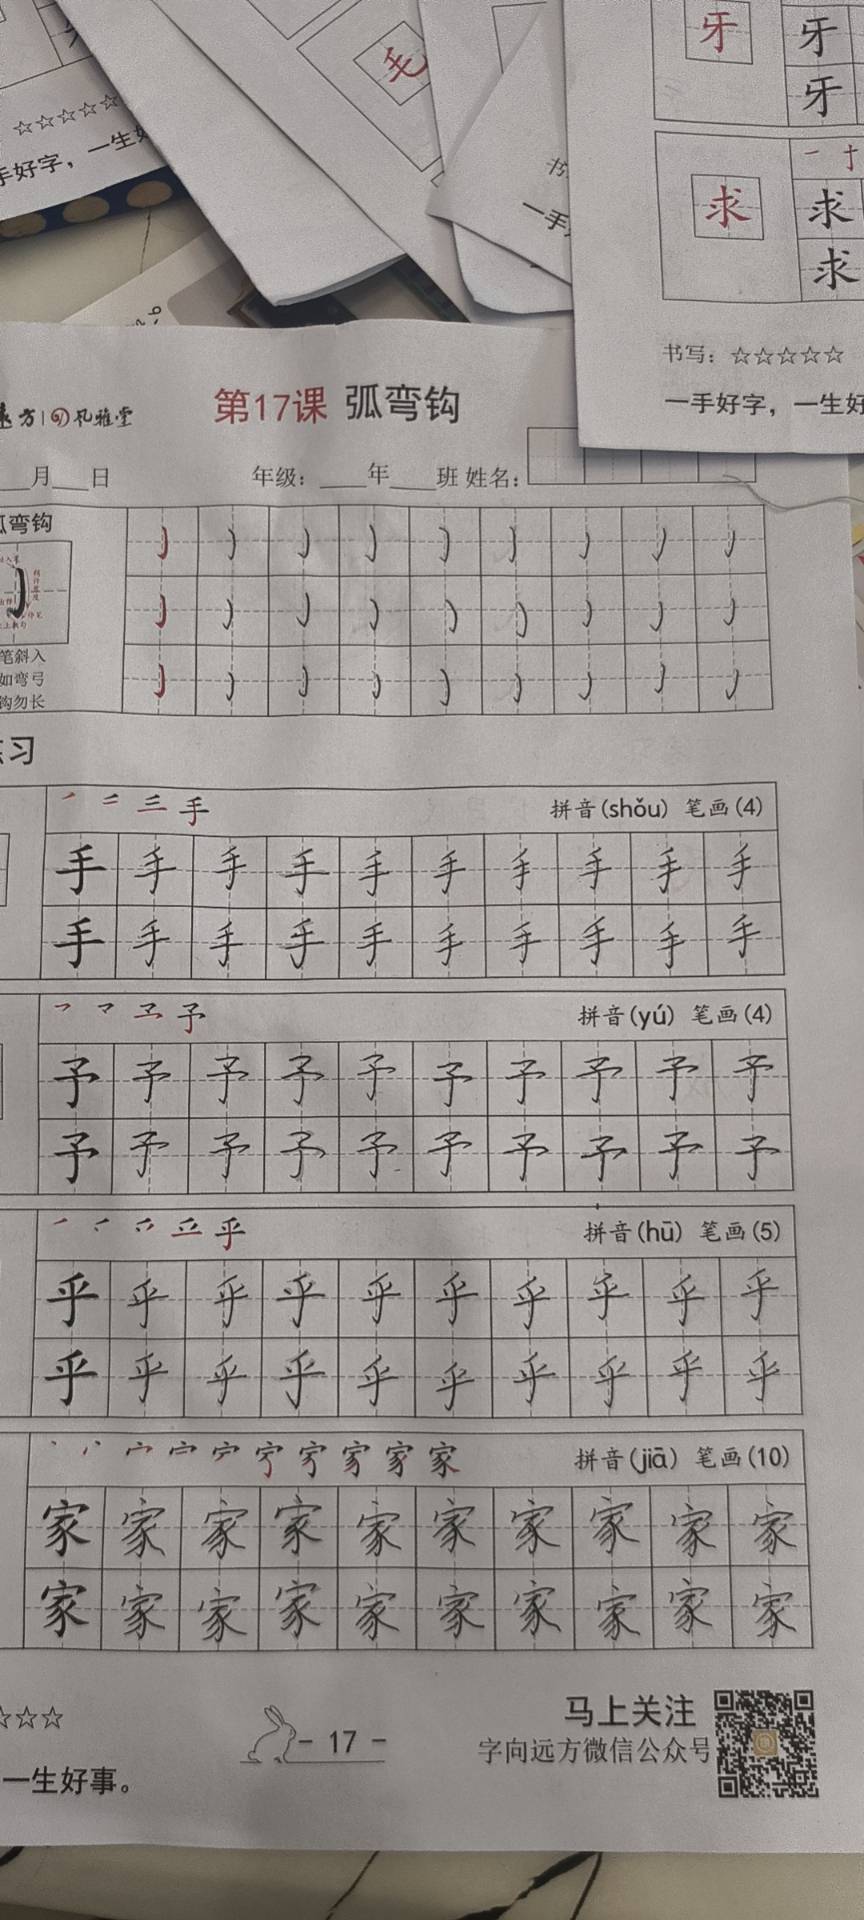 毛
牙 牙
牙
☆☆☆☆☆
手好字，一生好
一手
求 求
求
书写：☆☆☆☆☆
一手好字，一生好
远方 风雅堂
第17课 弧弯钩
月 日 年级：____年____班 姓名：
弧弯钩
笔斜入
如弯弓
钩勿长
练习
手 拼音(shǒu) 笔画(4)
手 手 手 手 手 手 手 手 手 手
手 手 手 手 手 手 手 手 手 手
予 拼音(yú) 笔画(4)
予 予 予 予 予 予 予 予 予 予
予 予 予 予 予 予 予 予 予 予
乎 拼音(hū) 笔画(5)
乎 乎 乎 乎 乎 乎 乎 乎 乎 乎
乎 乎 乎 乎 乎 乎 乎 乎 乎 乎
家 拼音(jiā) 笔画(10)
家 家 家 家 家 家 家 家 家 家
家 家 家 家 家 家 家 家 家 家
☆☆☆
一生好事。
- 17 -
马上关注
字向远方微信公众号